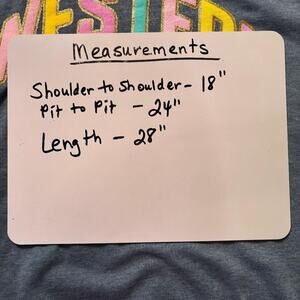 WESTERN
Measurements
Shoulder to Shoulder - 18"
Pit to Pit - 24"
Length - 28"